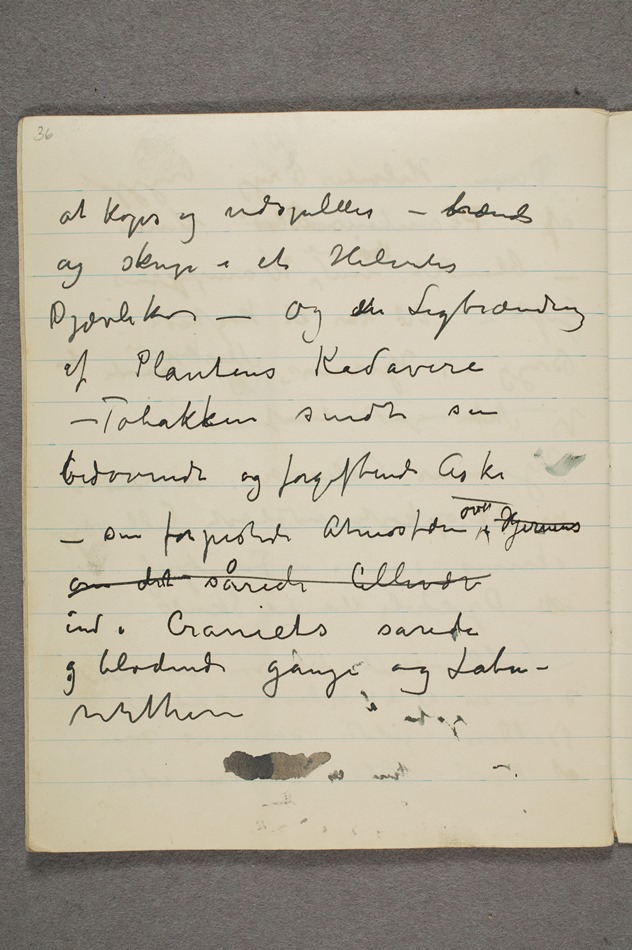 36
at koges og udspilles – brænde
og skrige i et Helvedes
Djævlekor – og Ligbrænding
af Plantens Kadavere
– Tobakken sendte sin
bedøvende og forgiftende Aske
– sin forpestede Atmosfære over Hjernens
om det sårede Cellevæv
ind i Craniets sarede
og blødende gange og Laby-
rinthen